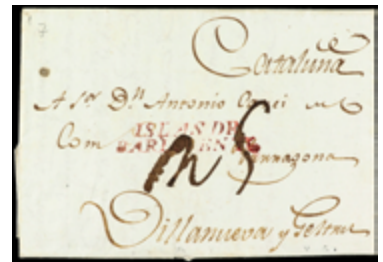 Cataluña
A Sor Dn Antonio
ISLAS DE
Com
BARLOVENTO
Tarragona
Villanueva y Geltru